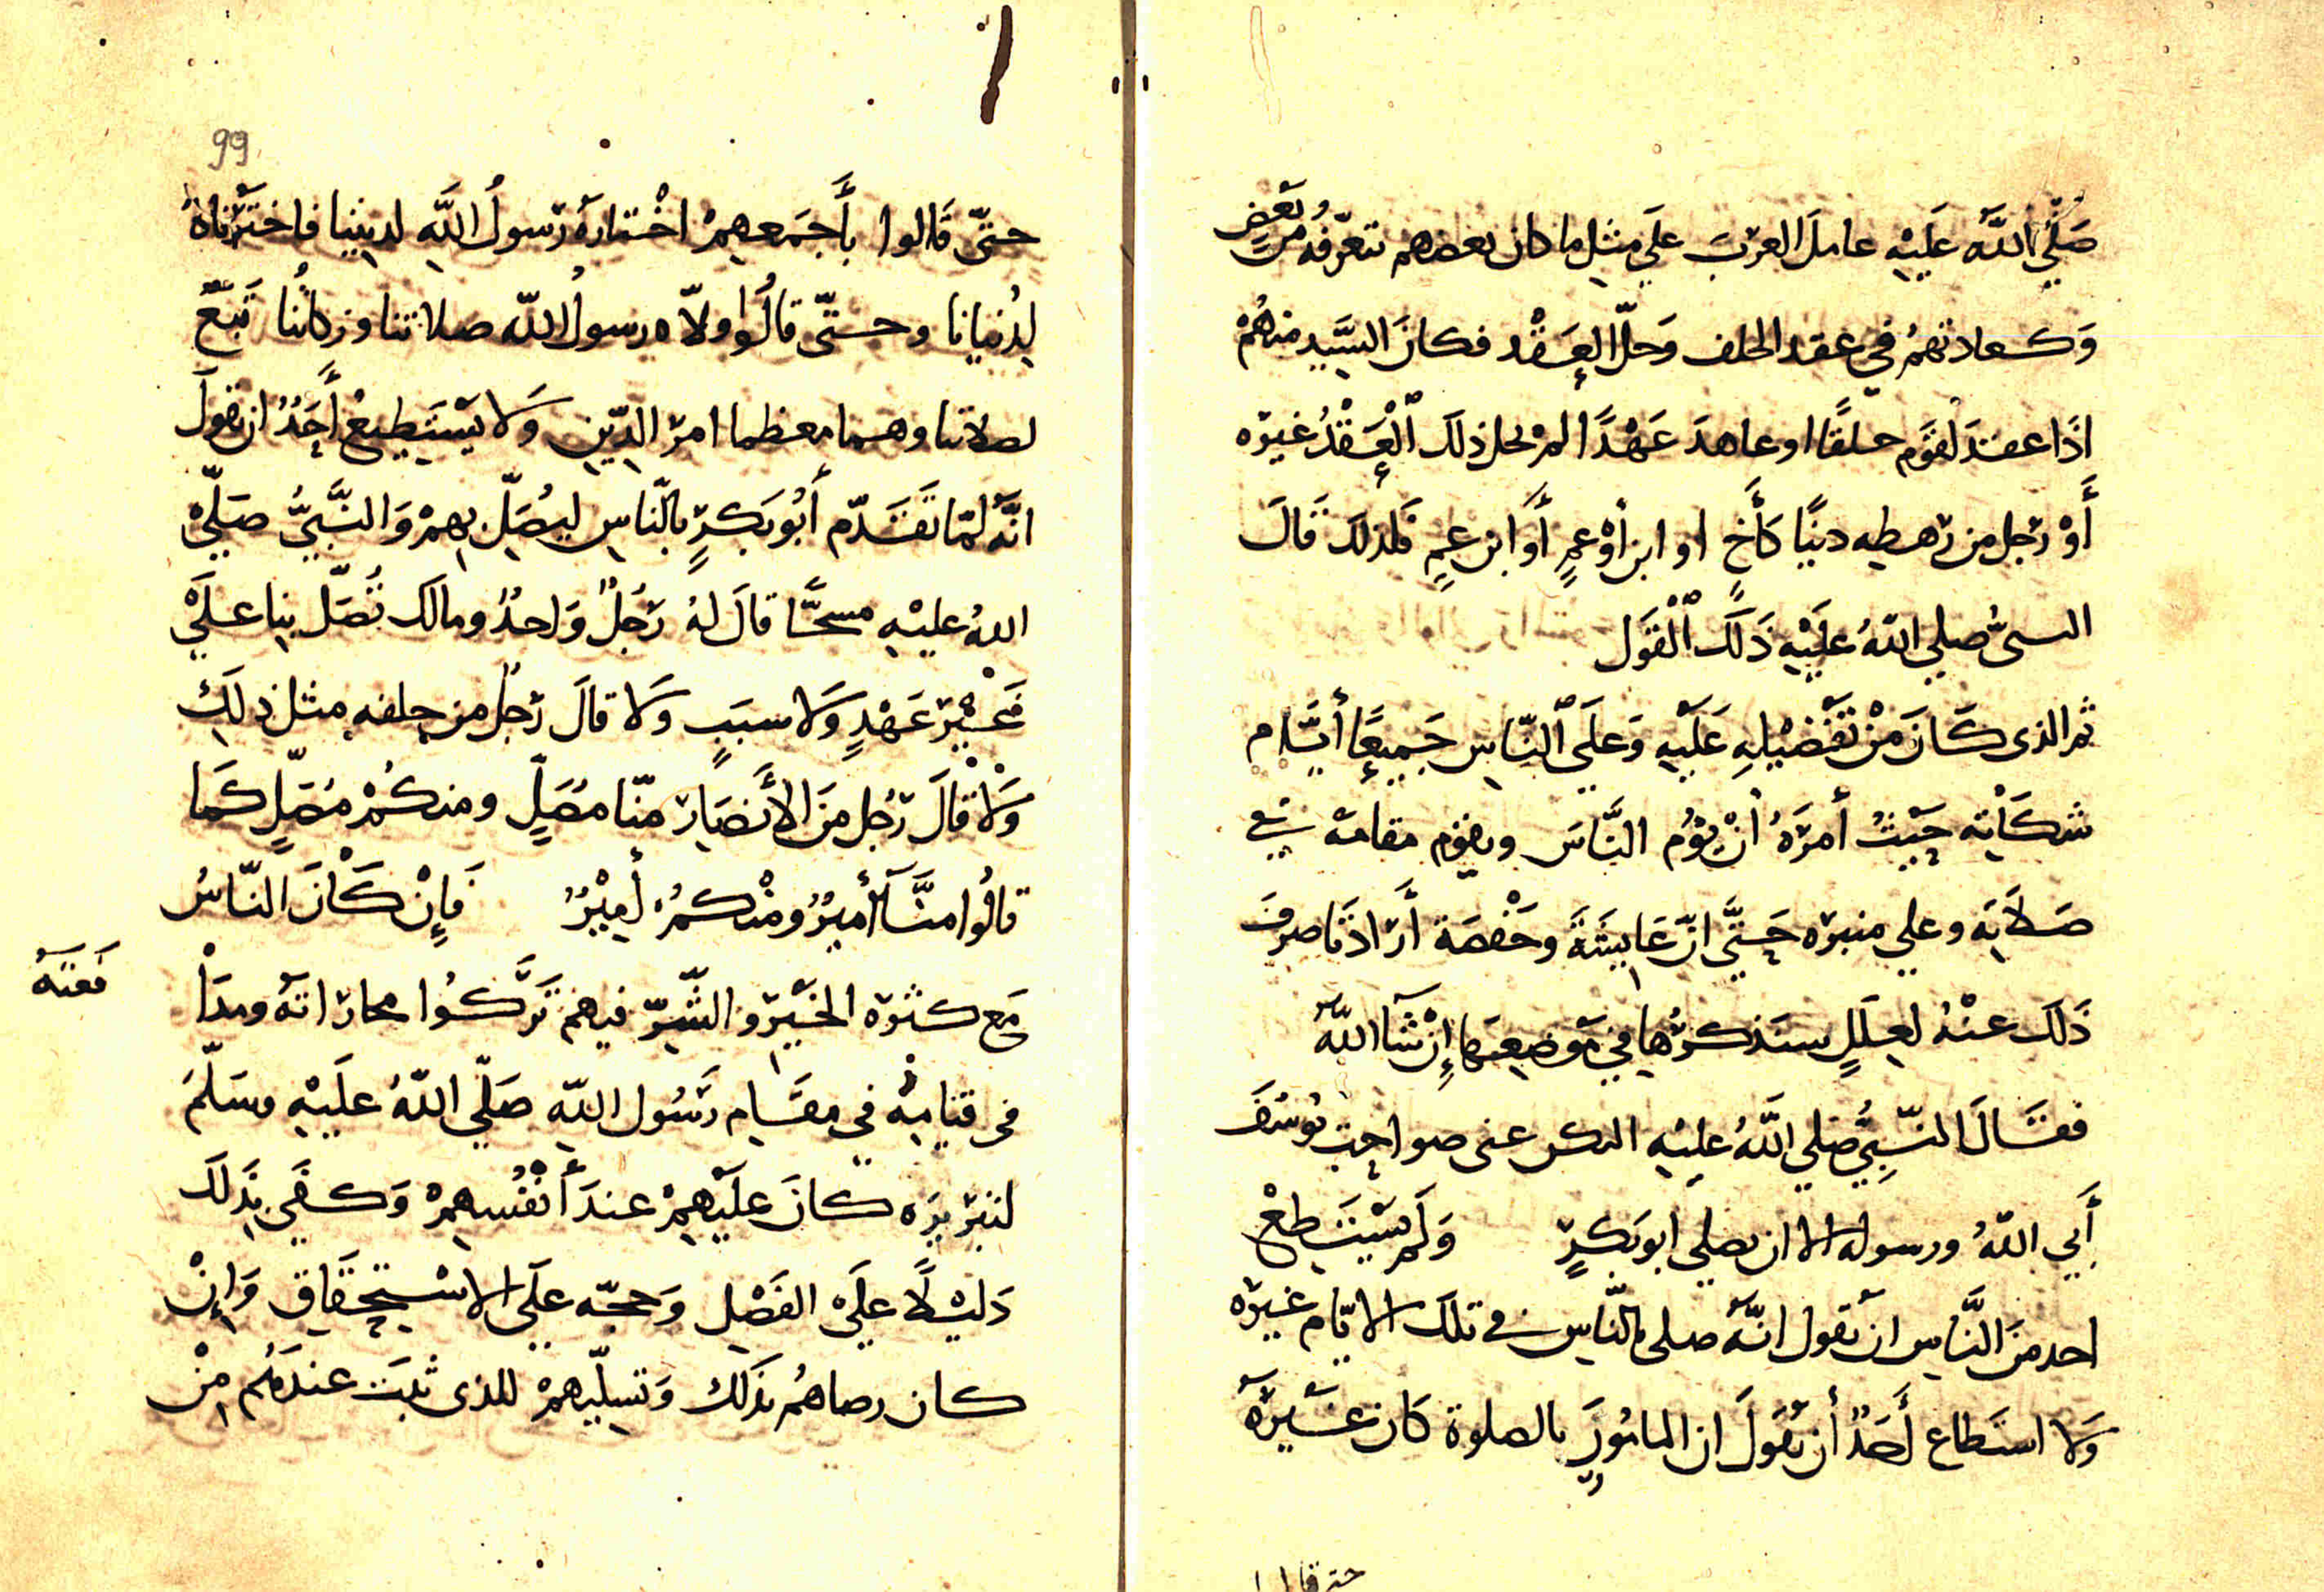 صَلَّى اللَّه عَلَيْهِ عامل العرب علي مثل ما كان بعضهم يتعرّفه من بَعْضٍ
وَكعادتهمُ في عقد الحلف وَحلّ العَقْد فكان السَّيد منهُمْ
اذَا عقد لقَوم حلفًا او عاهدَ عَهْدًا لمْ يحل ذلك الْعَقْدُ غيره
أَوْ رَجل من رهطه دنيًا كَأَخٍ او ابن أوْ عمٍ أَو ابن عمٍ فلذلكَ قَالَ
النبىُّ صلي اللّهُ عَلَيْهِ ذَلكَ الْقَوْل
ثم الذى كَانَ مَنْ تَفْضيْلِهِ عَلَيْهِ وَعلَي النّاسِ جَميعًا أيَّام
شكَاتِه حَيْثُ أمرَهُ أنْ يؤم النَّاسَ ويقوم مقامه في
صَلاَتِه وعلي منبره حَتَّي انّ عَايِشَةَ وحَفْصَة أَرَادَتا صرفَ
ذَلكَ عنْهُ لعِلَلٍ سنَذكرُها في مَوضعِهَا إِنْ شَآ اللَّهُ
فقَالَ النّبِيُّ صلي اللَّهُ عليْهِ اليكن عنى صواحِبَ يُوسُفَ
أَبَي اللَّهُ ورسوله الا ان يصلي ابو بَكرٍ وَلَم يَسْتَطِعْ
احد منَ النَّاسِ ان يَقول انَّهُ صلى بالنَّاسِ في تلكَ الاَيّام غيرَه
وَلا استَطاع أَحَدٌ أن يَقُولَ ان المامُورَ بالصلوة كَان غَيْرَهُ
حتى قالوا
99
حتّي قَالوا بأَجمَعهِمْ اخْتارهُ رَسولُ اللَّهِ لدِينِنا فاختَرْناهُ
لِدُنيانا وحتّي قالُوا ولاّه رسولُ اللّه صلاتنا وزكاتُنا تَبَعٌ
لصلاتنا وهما معظما امرَ الدّينِ وَلا يَسْتَطيعُ أحَدٌ ان يقولَ
انَّهُ لمّا تَقَدّم أَبُو بَكرٍ بالنّاسِ ليُصَلّي بِهِمْ وَالنَّبيُّ صَلَّيْ
اللهُ عليْهِ مسجًّا قالَ لهُ رَجُلٌ وَاحدٌ ومالكَ تُصَلّ بنا عَلَيْ
غَيْر عَهْدٍ وَلا سبَبٍ وَلا قالَ رَجُلٌ من خلفهِ مثل ذلك
وَلا قَالَ رَجُل منَ الأَنصَار منّا مصَلٍّ ومنكُمْ مُصَلٍّ كَما
قالُوا منَّا أميْرٌ ومنْكمُ أميْرٌ فَإِنْ كَانَ النّاسُ
مَع كثرة الخَيْر والشّرّ فيهم تَرَكُوا مجاراتهُ ومدَا
فعتهُ
في قيَامِهْ في مقَام رَسُول اللّهِ صَلّي اللّهُ عَلَيْهِ وسَلّمَ
لتبريزه كانَ علَيْهِمْ عندَ أَنْفُسهِمْ وَكفَي بذَلكَ
دَليْلاً علَيْ الفَضْل وَحجّه علَي الاسْتِحقَاقِ وَإِنْ
كان رضاهُم بذَلك وَتسليمهمْ للذى ثبتَ عندَهُم مِنْ